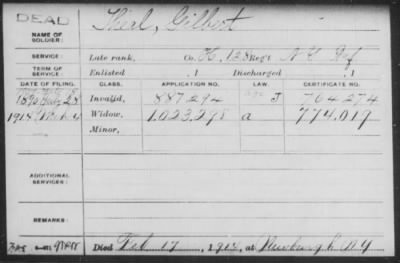 DEAD
NAME OF SOLDIER:
Theal, Gilbert
SERVICE:
Late rank, Co. 128 Reg't N Y Inf
TERM OF SERVICE:
Enlisted , 1 Discharged , 1
DATE OF FILING. CLASS. APPLICATION NO. LAW. CERTIFICATE NO.
1890 28 Invalid, 887294 J 764274
191 Widow, 1,023,298 a 774,019
Minor,
ADDITIONAL SERVICES:
REMARKS:
Died Feb 17, 191 , at Newburgh NY